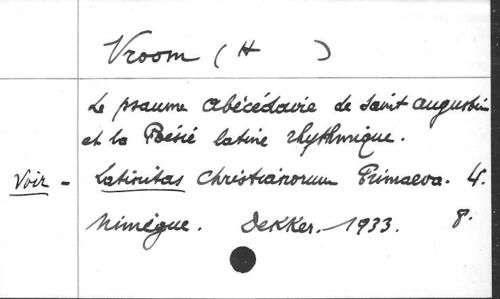 Vroom (H )
Le psaume abécédaire de Saint Augustin
et la Poésie latine rhythmique.
Voir - Latinitas Christianorum Primaeva. 4.
Nimègue. Dekker. 1933. 8.